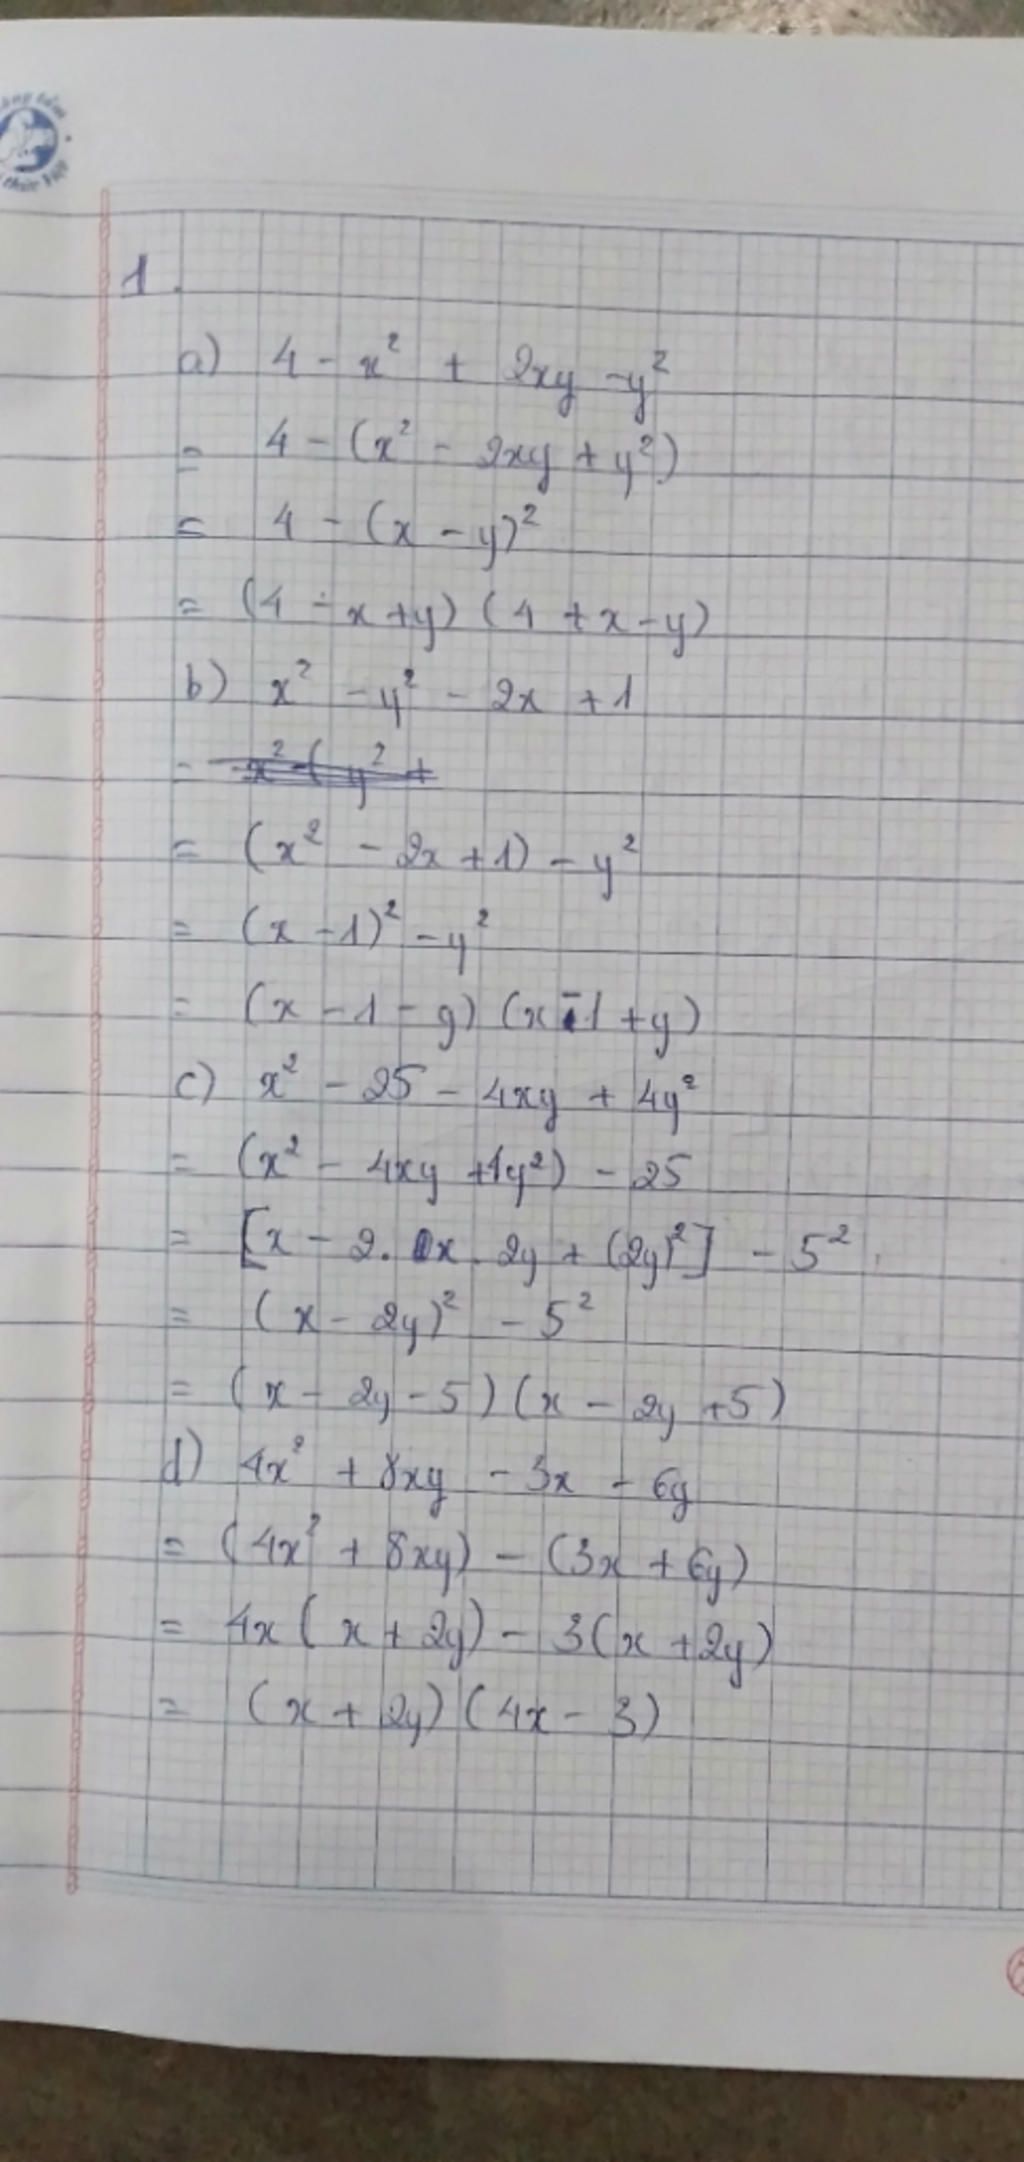 1.
a) 4 - x² + 2xy - y²
= 4 - (x² - 2xy + y²)
= 4 - (x - y)²
= (4 - x + y) (4 + x - y)
b) x² - y² - 2x + 1
= x² - ( y² +
= (x² - 2x + 1) - y²
= (x - 1)² - y²
= (x - 1 - y) (x - 1 + y)
c) x² - 25 - 4xy + 4y²
= (x² - 4xy + 4y²) - 25
= [x - 2. x . 2y + (2y)²] - 5²
= (x - 2y)² - 5²
= (x - 2y - 5) (x - 2y + 5)
d) 4x² + 8xy - 3x - 6y
= (4x² + 8xy) - (3x + 6y)
= 4x ( x + 2y) - 3(x + 2y)
= (x + 2y) (4x - 3)